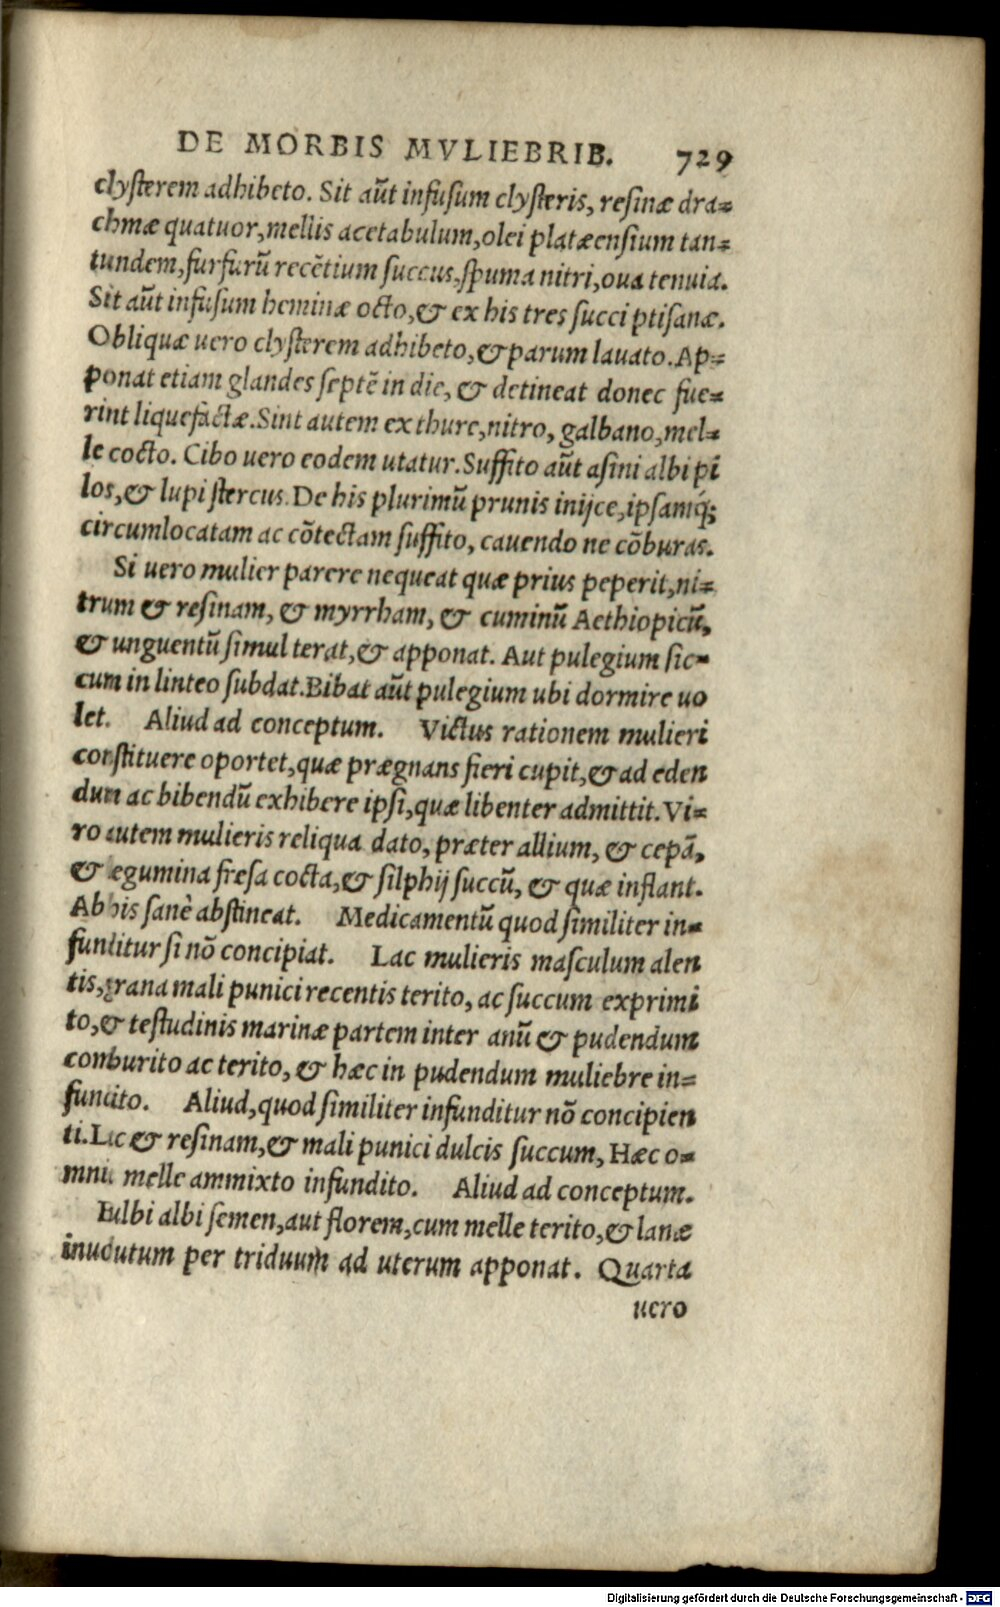 DE MORBIS MVLIEBRIB. 729
clysterem adhibeto. Sit aūt infusum clysteris, resinæ dra=
chmæ quatuor, mellis acetabulum, olei platæensium tan=
tundem, furfurū recētium succus, spuma nitri, oua tenuia.
Sit aūt infusum heminæ octo, & ex his tres succi ptisanæ.
Obliquæ uero clysterem adhibeto, & parum lauato. Ap=
ponat etiam glandes septē in die, & detineat donec fue=
rint liquefactæ. Sint autem ex thure, nitro, galbano, mel=
le cocto. Cibo uero eodem utatur. Suffito aūt asini albi pi
los, & lupi stercus. De his plurimū prunis inijce, ipsamq́;
circumlocatam ac cōtectam suffito, cauendo ne cōburas.
Si uero mulier parere nequeat quæ prius peperit, ni=
trum & resinam, & myrrham, & cuminū Aethiopicū,
& unguentū simul terat, & apponat. Aut pulegium sic=
cum in linteo subdat. Bibat aūt pulegium ubi dormire uo
let. Aliud ad conceptum. Victus rationem mulieri
constituere oportet, quæ prægnans fieri cupit, & ad eden
dum ac bibendū exhibere ipsi, quæ libenter admittit. Vi=
ro autem mulieris reliqua dato, præter allium, & cepā,
& legumina fresa cocta, & silphij succū, & quæ inflant.
Ab his sanè abstineat. Medicamentū quod similiter in=
funditur si nō concipiat. Lac mulieris masculum alen
tis, grana mali punici recentis terito, ac succum exprimi
to, & testudinis marinæ partem inter anū & pudendum
comburito ac terito, & hæc in pudendum muliebre in=
fundito. Aliud, quod similiter infunditur nō concipien
ti. Lac & resinam, & mali punici dulcis succum, Hæc o=
mnia melle ammixto infundito. Aliud ad conceptum.
Bulbi albi semen, aut florem, cum melle terito, & lanæ
inuolutum per triduum ad uterum apponat. Quarta
uero
Digitalisierung gefördert durch die Deutsche Forschungsgemeinschaft - DFG